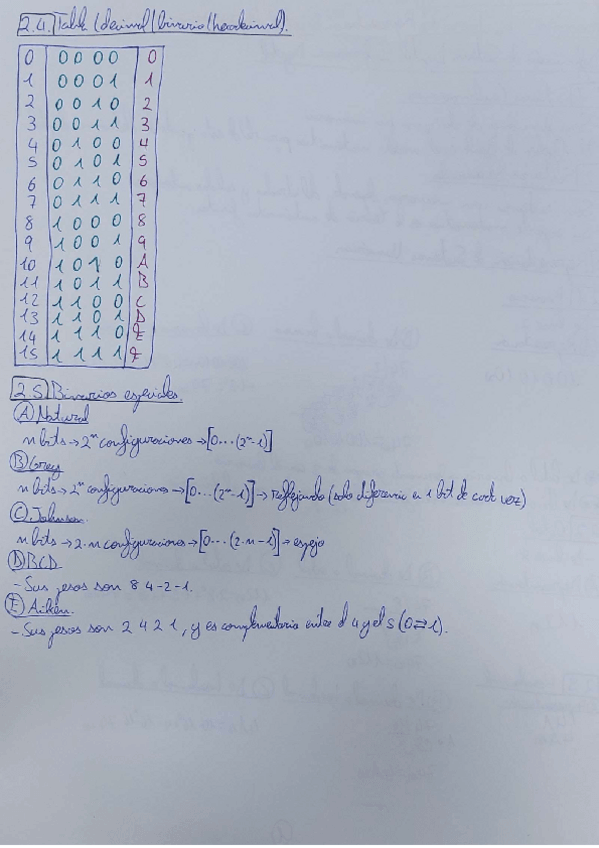 2.4. Tabla (decimal/binario/hexadecimal).
0 0 0 0 0 0
1 0 0 0 1 1
2 0 0 1 0 2
3 0 0 1 1 3
4 0 1 0 0 4
5 0 1 0 1 5
6 0 1 1 0 6
7 0 1 1 1 7
8 1 0 0 0 8
9 1 0 0 1 9
10 1 0 1 0 A
11 1 0 1 1 B
12 1 1 0 0 C
13 1 1 0 1 D
14 1 1 1 0 E
15 1 1 1 1 F
2.5. Binarios especiales.
A Natural
n bits → 2ⁿ configuraciones → [0...(2ⁿ-1)]
B Grey
n bits → 2ⁿ configuraciones → [0...(2ⁿ-1)] → reflejando (solo diferencia en 1 bit de cada vez)
C Johnson.
n bits → 2·n configuraciones → [0...(2·n-1)] → espejo
D BCD.
- Sus pesos son 8 4-2-1.
E Aiken.
- Sus pesos son 2 4 2 1, y es complementario entre el 4 y el 5 (0⇄1).